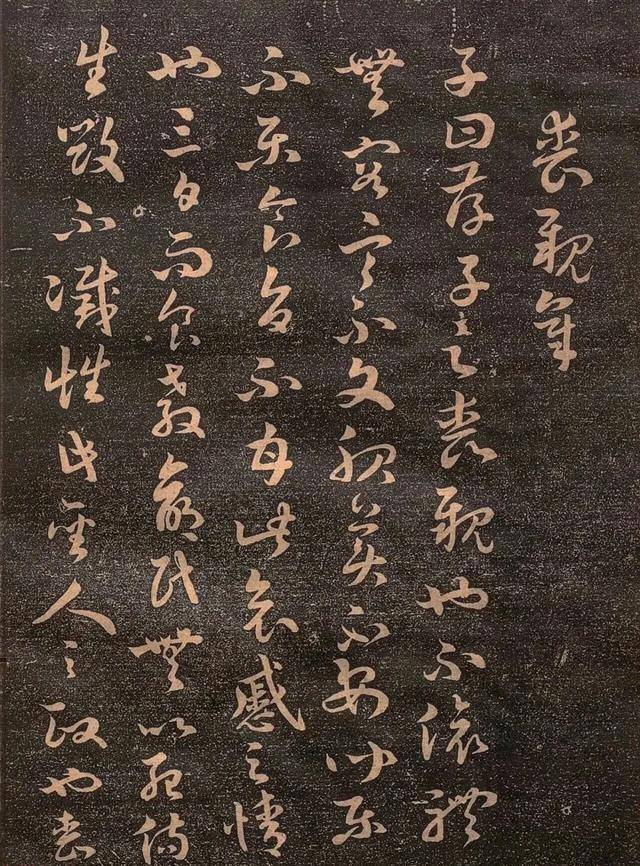 喪親章
子曰孝子之喪親也不偯禮
無容言不文服美不安聞樂
不樂食旨不甘此哀慼之情
也三日而食教民無以死傷
生毀不滅性此聖人之政也喪